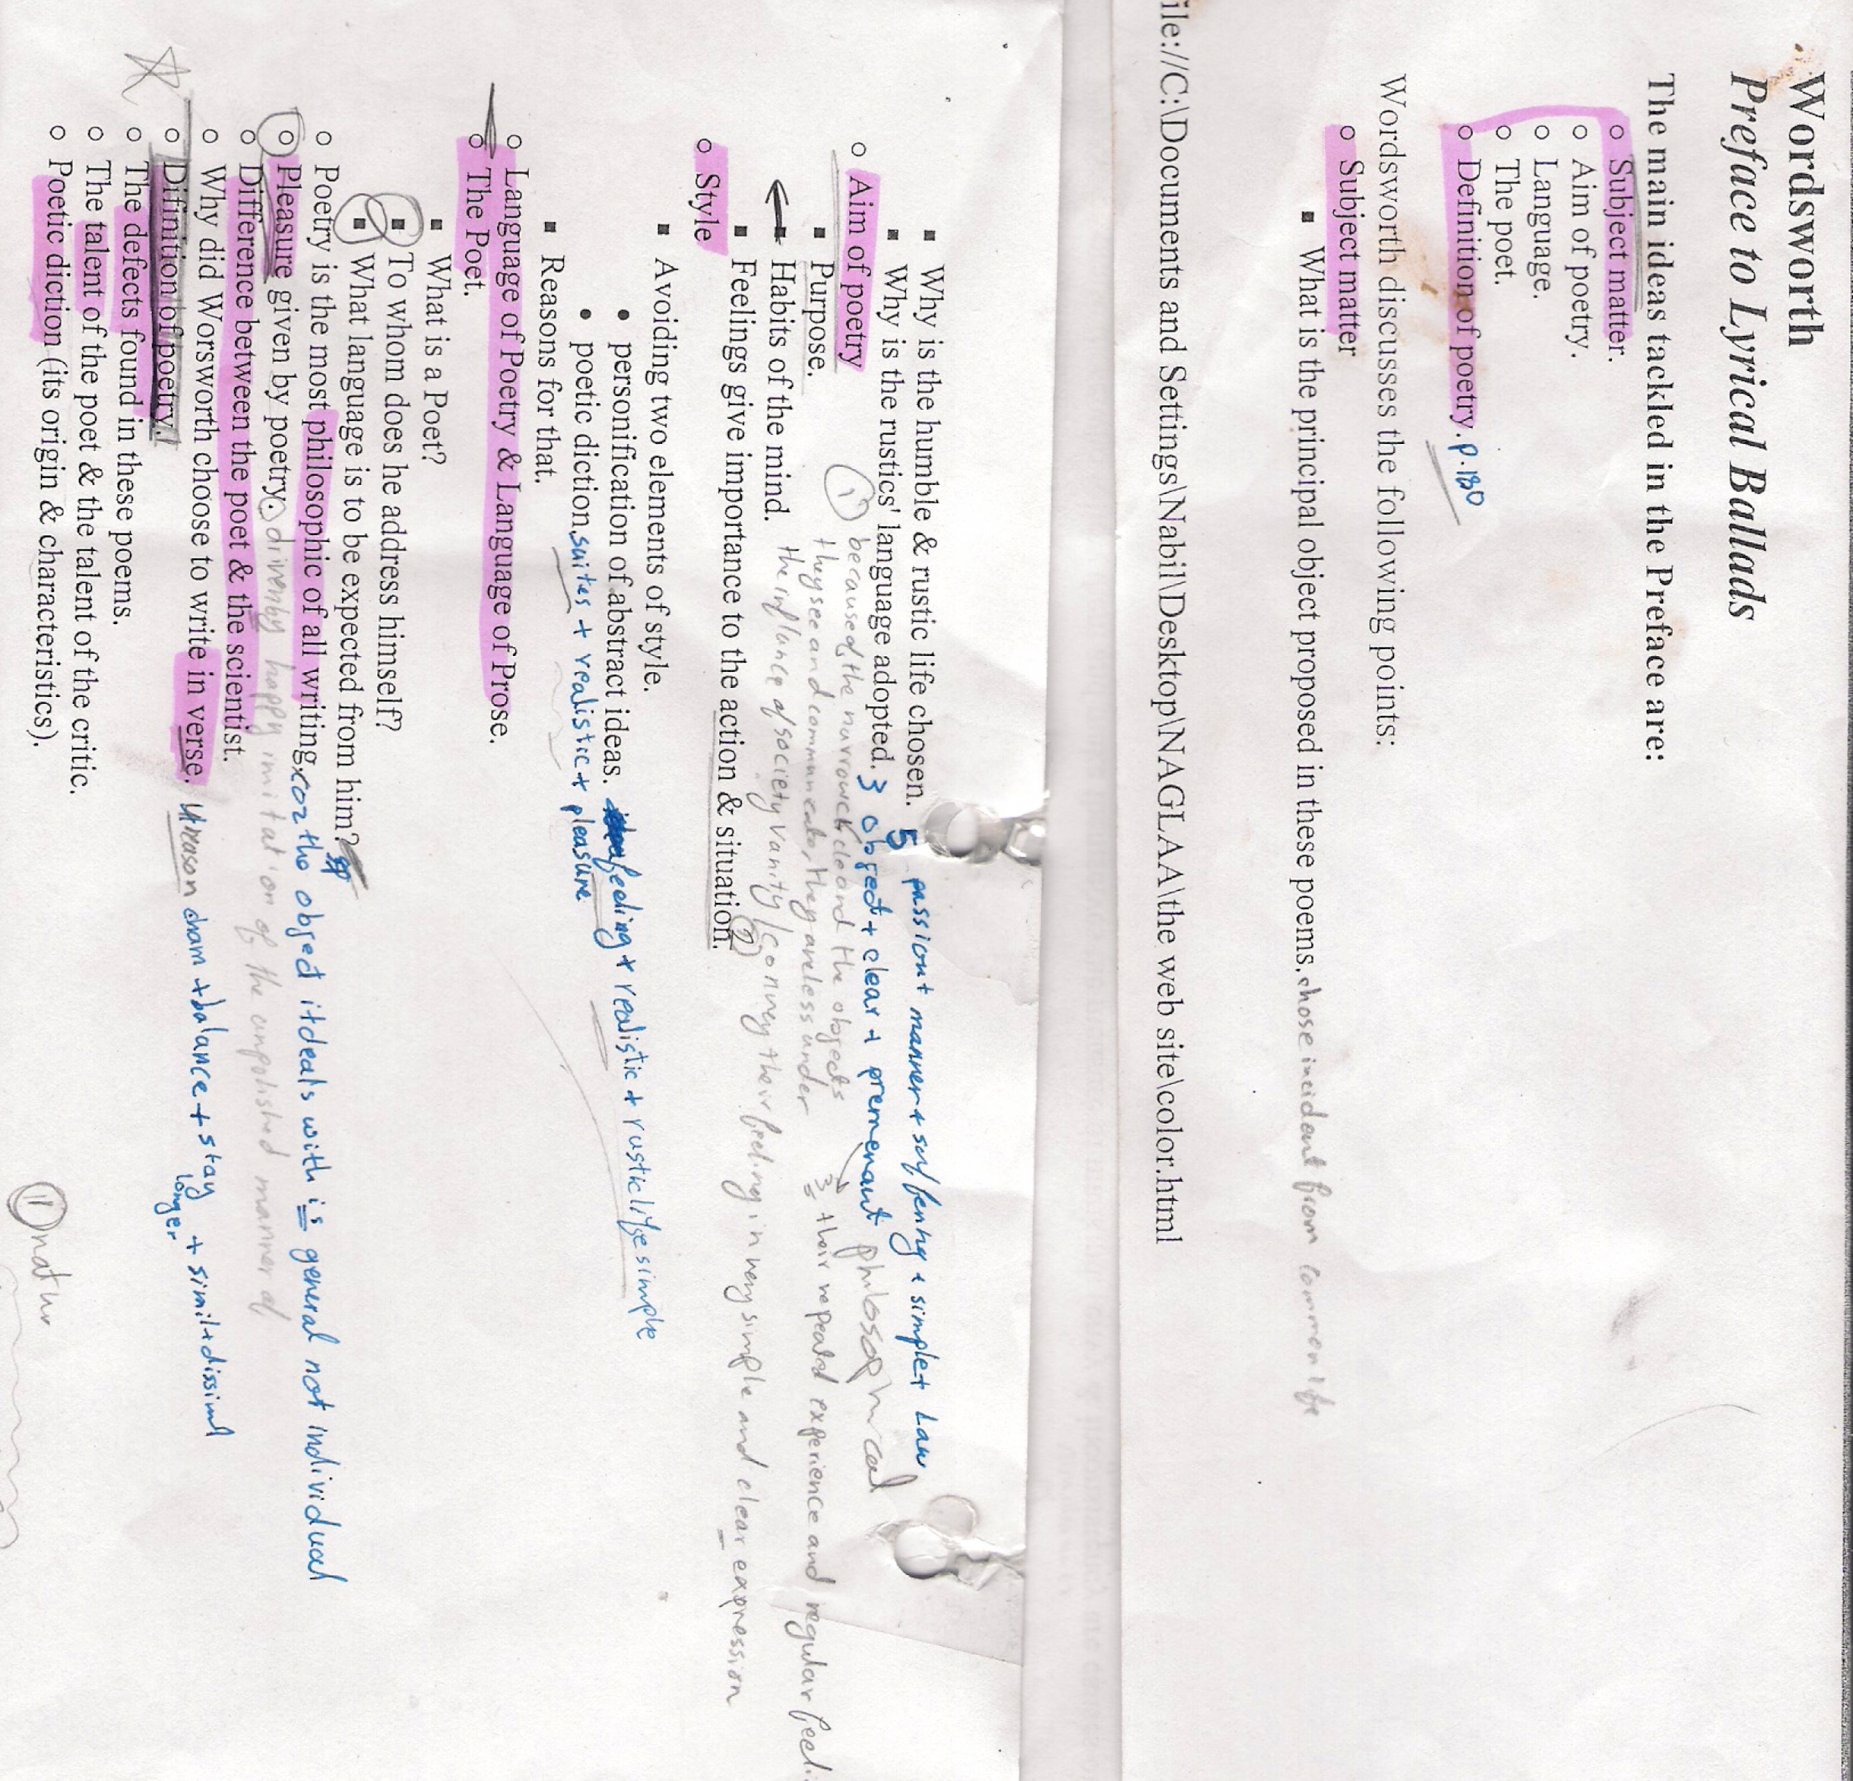 Wordsworth
Preface to Lyrical Ballads
The main ideas tackled in the Preface are:
Subject matter.
Aim of poetry.
Language.
The poet.
Definition of poetry. p.180
Wordsworth discusses the following points:
Subject matter
What is the principal object proposed in these poems. chose incident from common life
ile://C:\Documents and Settings\Nabil\Desktop\NAGLAA\the web site\color.html
Why is the humble & rustic life chosen. 5 passion + manner + + simple + Law
Why is the rustics' language adopted. 3 object + clear + premenant philosophical
1 because of the narrow and the objects
Aim of poetry
they see and communicate, they are less under 3 their repeated experience and regular feeli
Purpose.
the influence of society vanity / convey their feeling in very simple and clear expression
Habits of the mind.
Feelings give importance to the action & situation. 2
Style
Avoiding two elements of style.
personification of abstract ideas. feeling + realistic + rustic life simple
poetic diction, suites + realistic + pleasure
Reasons for that.
Language of Poetry & Language of Prose.
The Poet.
What is a Poet?
To whom does he address himself?
What language is to be expected from him?
Poetry is the most philosophic of all writing. coz the object it deals with is general not individual
Pleasure given by poetry. driven by happy imitation of the unpolished manner of
Difference between the poet & the scientist.
Why did Worsworth choose to write in verse. 4 reason charm + balance + stay longer + simil + dissiml
Difinition of poetry.
The defects found in these poems.
The talent of the poet & the talent of the critic.
Poetic diction (its origin & characteristics).
1 natur